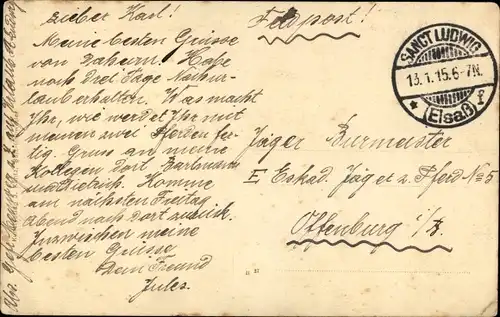 Lieber Karl!
Meine besten Grüsse
von Daheim. Habe
noch drei Tage Nachur-
laub erhalten. Was macht
Ihr, wie werdet Ihr mit
meinen zwei Pferden fer-
tig. Gruss an meine
Kollegen dort, Bartmann
und Dietrich. Komme
am nächsten Freitag
Abend nach dort zurück.
Inzwischen meine
besten Grüsse
Dein Freund
Jules.
Feldpost!
SANCT LUDWIG
13.1.15.6-7N.
* (Elsaß) f
Jäger Burmeister
E Eskad. Jäger z. Pferd No 5
Offenburg i/B.
Abs.